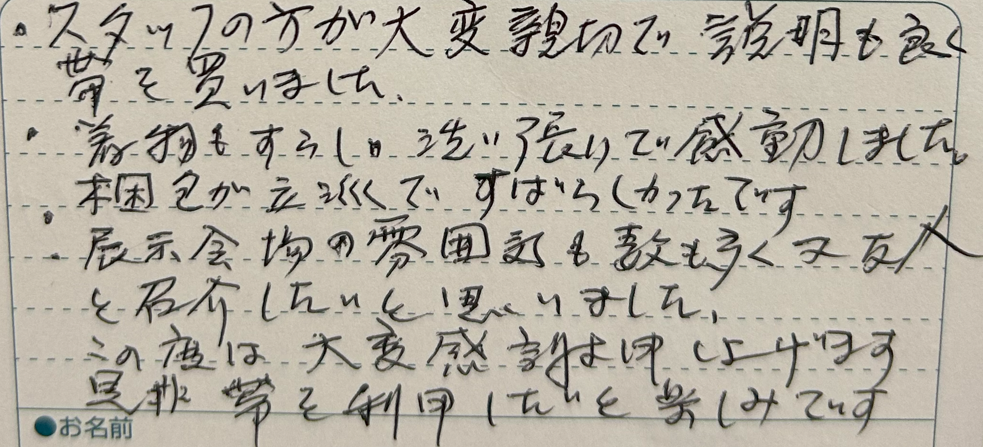 ・スタッフの方が大変親切で説明も良く
帯を買いました。
・着物もすばらしい洗い張りで感動しました。
梱包が立派ですばらしかったです
・展示会場の雰囲気も数も多く又友人
を召介したいと思いました。
この度は大変感謝お申し上げます
是非帯を利用したいと楽しみです
●お名前